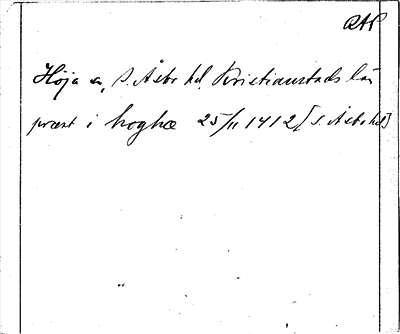 RAP
Höja sn, S. Åsbo hd. Kristianstads län
præst i hoghæ 25/11 1412 [S. Åsbo hd]